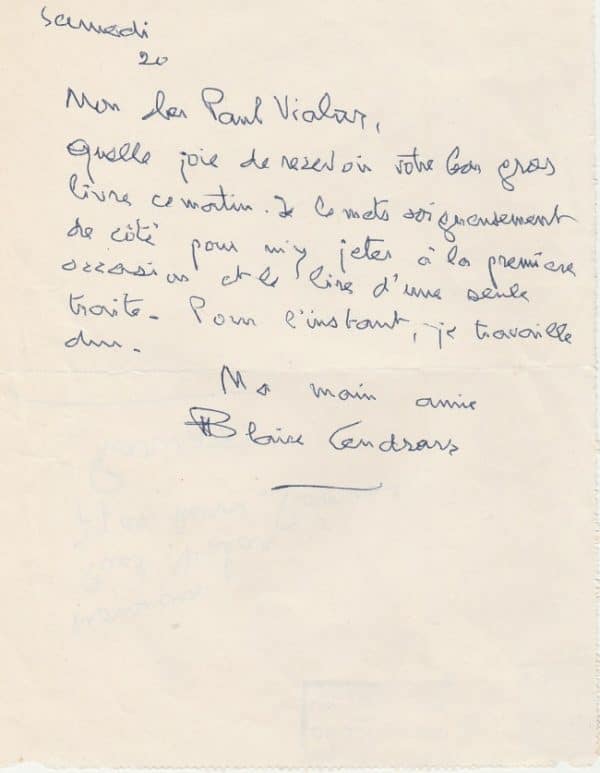 Samedi
20
Mon cher Paul Vialar,
quelle joie de recevoir votre bon gros
livre ce matin. Je le mets soigneusement
de côté pour m'y jeter à la première
occasion et le lire d'une seule
traite. Pour l'instant, je travaille
dur.
Ma main amie
Blaise Cendrars